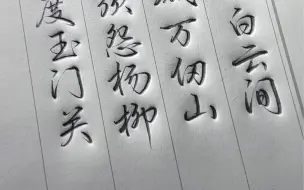 白云间
万仞山
须怨杨柳
度玉门关